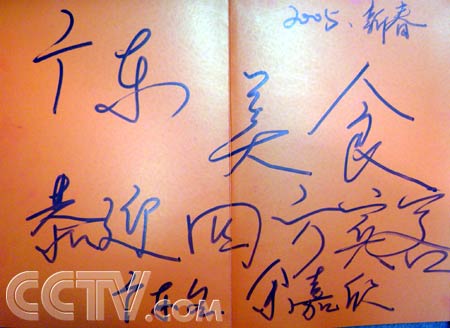 2005、新春
广东 美食
恭迎四方宾客
广东 嘉欣
CCTV.com